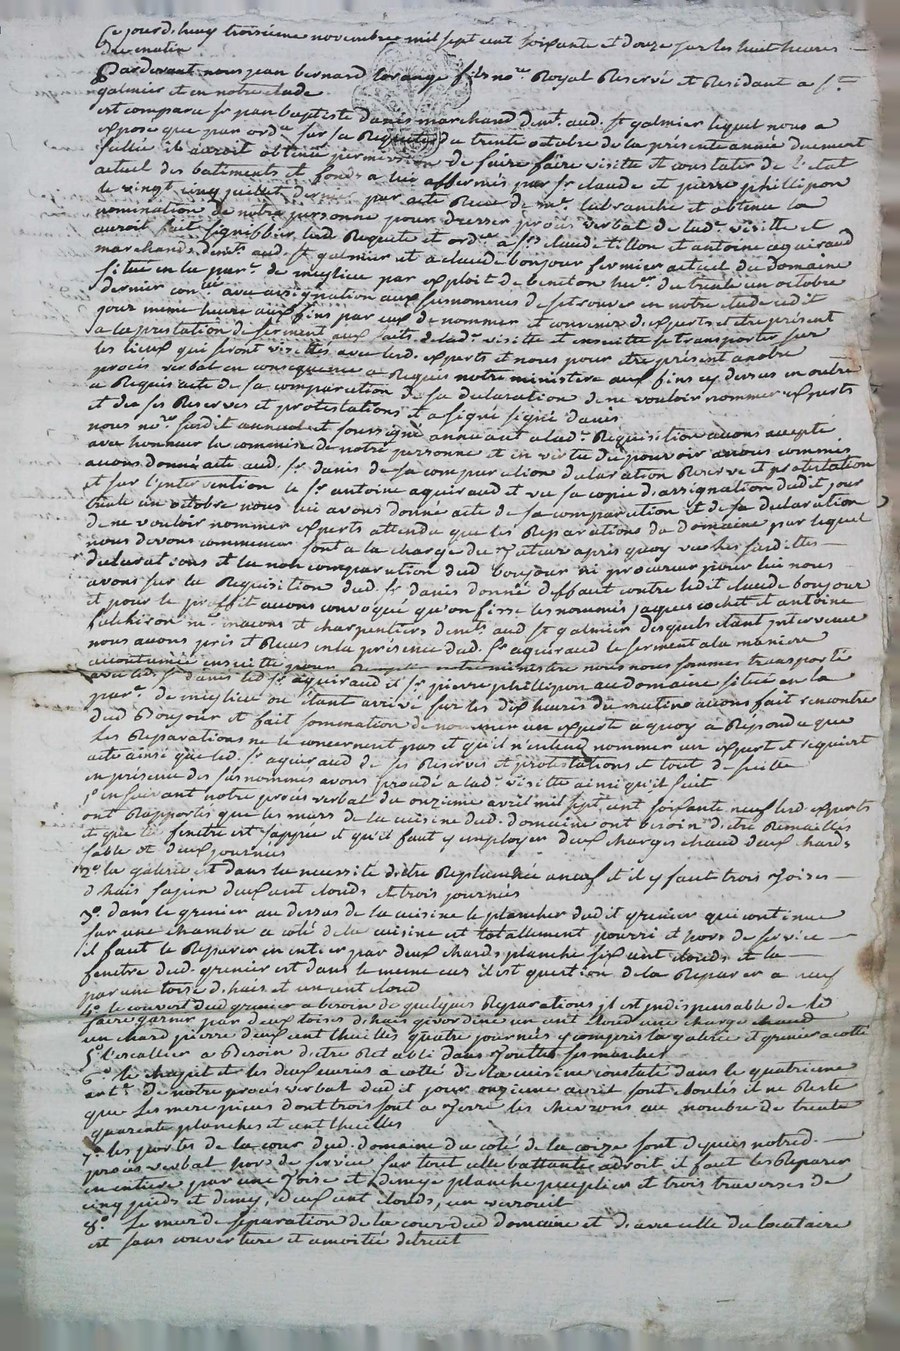 Ce jourd'huy troisieme novembre mil sept cent soixante et douze sur les huit heures
du matin
Pardevant nous jean bernard lorange fils no.re Royal Reservé et Residant a S.t
galmier et en notre etude
est comparu s.r jean baptiste danis marchand dem.t aud. S.t galmier lequel nous a
exposé que par ord.ce sur sa Requette du trente octobre de la presente année duement
sellée il auroit obtenu permission de faire faire visitte et constater de l'etat
actuel des batiments et fonds a lui affermés par s.r claude et pierre phillipon
le vingt cinq juillet dernier par acte Recu de m.e labranche et obtenu la
nomination de notre personne pour dresser procès verbal de lad. visitte et
auroit fait signiffier lad. Requete et ord.ce a s.rs claude tillon et antoine aguiraud
marchands dem.ts aud. S.t galmier et a claude bonjour fermier actuel du domaine
situé en la par.se de meylieu par exploit de beneton hu.er du trente un octobre
dernier con.lé avec assignation aux susnommés de se trouver en notre etude cedit
jour meme heure aux fins par eux de nommer et convenir d'experts et etre présent
a la prestation de serment aux faits de lad. visitte et ensuitte se transporter sur
les lieux qui seront visittés avec lesd. experts et nous pour etre présent a notre
procès verbal en consequence a Requis notre ministere aux fins cy dessus en outre
a Requis acte de sa comparution de sa declaration de ne vouloir nommer experts
et de ses Reserves et protestations et a signé signé danis
nous no.re susdit et soussigné ayant acte a lad. Requisition avons accepté
avec honneur la commis.on de notre personne et en vertu du pouvoir a nous commis
avons donné acte aud. s.r danis de sa comparution declaration Reserve et protestation
et sur l'intervention le s.r antoine aguiraud et vu sa copie d'assignation dudit jour
trente un octobre nous lui avons donné acte de sa comparution et de sa declaration
de ne vouloir nommer experts attendu que les Reparations du domaine par lequel
nous devons commencer sont a la charge du apres quoy vu les susdittes
declarations et la non comparution dud. bonjour ni procureur pour lui nous
avons sur la Requisition dud. s.r danis donné deffaut contre ledit claude bonjour
et pour le proffit avons convoqué qu'on fisse les nommés jaques cochet et antoine
fulchiron m.e macons et charpentiers dem.ts aud. S.t galmier desquels etant intervenue
nous avons pris et Recus en la présence dud. s.r aguiraud le serment a la maniere
accoutumée ensuitte pour Remplir notre ministre nous nous sommes transporté
avec led. s.r danis led. s.r aguiraud et s.r pierre phillipon au domaine situé en la
par.se de meylieu ou etant arrivé sur les dix heures du matin avons fait rencontre
dud. Bonjour et fait sommation de nommer un expert a quoy a Repondu que
les Reparations ne le concernent pas et qu'il n'entend nommer un expert et requiert
acte ainsi que led. s.r aguiraud de ses Reserves et protestations et tout de suitte
en présence des susnommés avons procedé a lad. visitte ainsi qu'il suit
1.o en suivant notre procès verbal du onzieme avril mil sept cent soixante neuf lesd. experts
ont Rapportés que les murs de la cuisine dud. domaine ont besoin d'etre Remaillés
et que la fenetre est sappée et qu'il faut y employer deux charges chaud deux chards
sable et deux journées
2.o la galerie est dans la necessité d'etre Replancheiée a neuf et il y faut trois toises
d'hais sapin deux cent clouds et trois journées
3.o dans le grenier au dessus de la cuisine le plancher dudit grenier qui continue
sur une chambre a coté de la cuisine est totallement pourri et hors de service
il faut le Reparer en entier par deux chards planche six cent clouds et la
fenetre dud. grenier est dans le meme cas il est question de la Reparer a neuf
par une toise d'hais et un cent cloud
4.o le couvert dud. grenier a besoin de quelques Reparations il est indispensable de le
faire garnir par deux toises d'hais givordine un cent cloud une charge chaud
un chard pierre deux cent thuilles quatre journées y compris la galerie et grenier a cotté
5.o l'escallier a Besoin d'etre Retabli dans toutes ses marches
6.o le chapit et les deux ecuries a cotté de la cuisine constaté dans le quatrieme
art.e de notre procès verbal dudit jour onzieme avril sont eboulés il ne Reste
que les mere pieces dont trois sont a terre les chevrons au nombre de trente
quarente planches et cent thuilles
7.o les portes de la cour dud. domaine du coté de la coize sont depuis notred.
procès verbal hors de service sur tout celle battante adroit il faut les Reparer
en entier par une toise et demye planche peuplier et trois traverses de
cinq pieds et demy, deux cent clouds, un verouil
8.o Le mur de separation de la cour dud. domaine et d'avec celle du locataire
est sans couverture et a moitié detruit